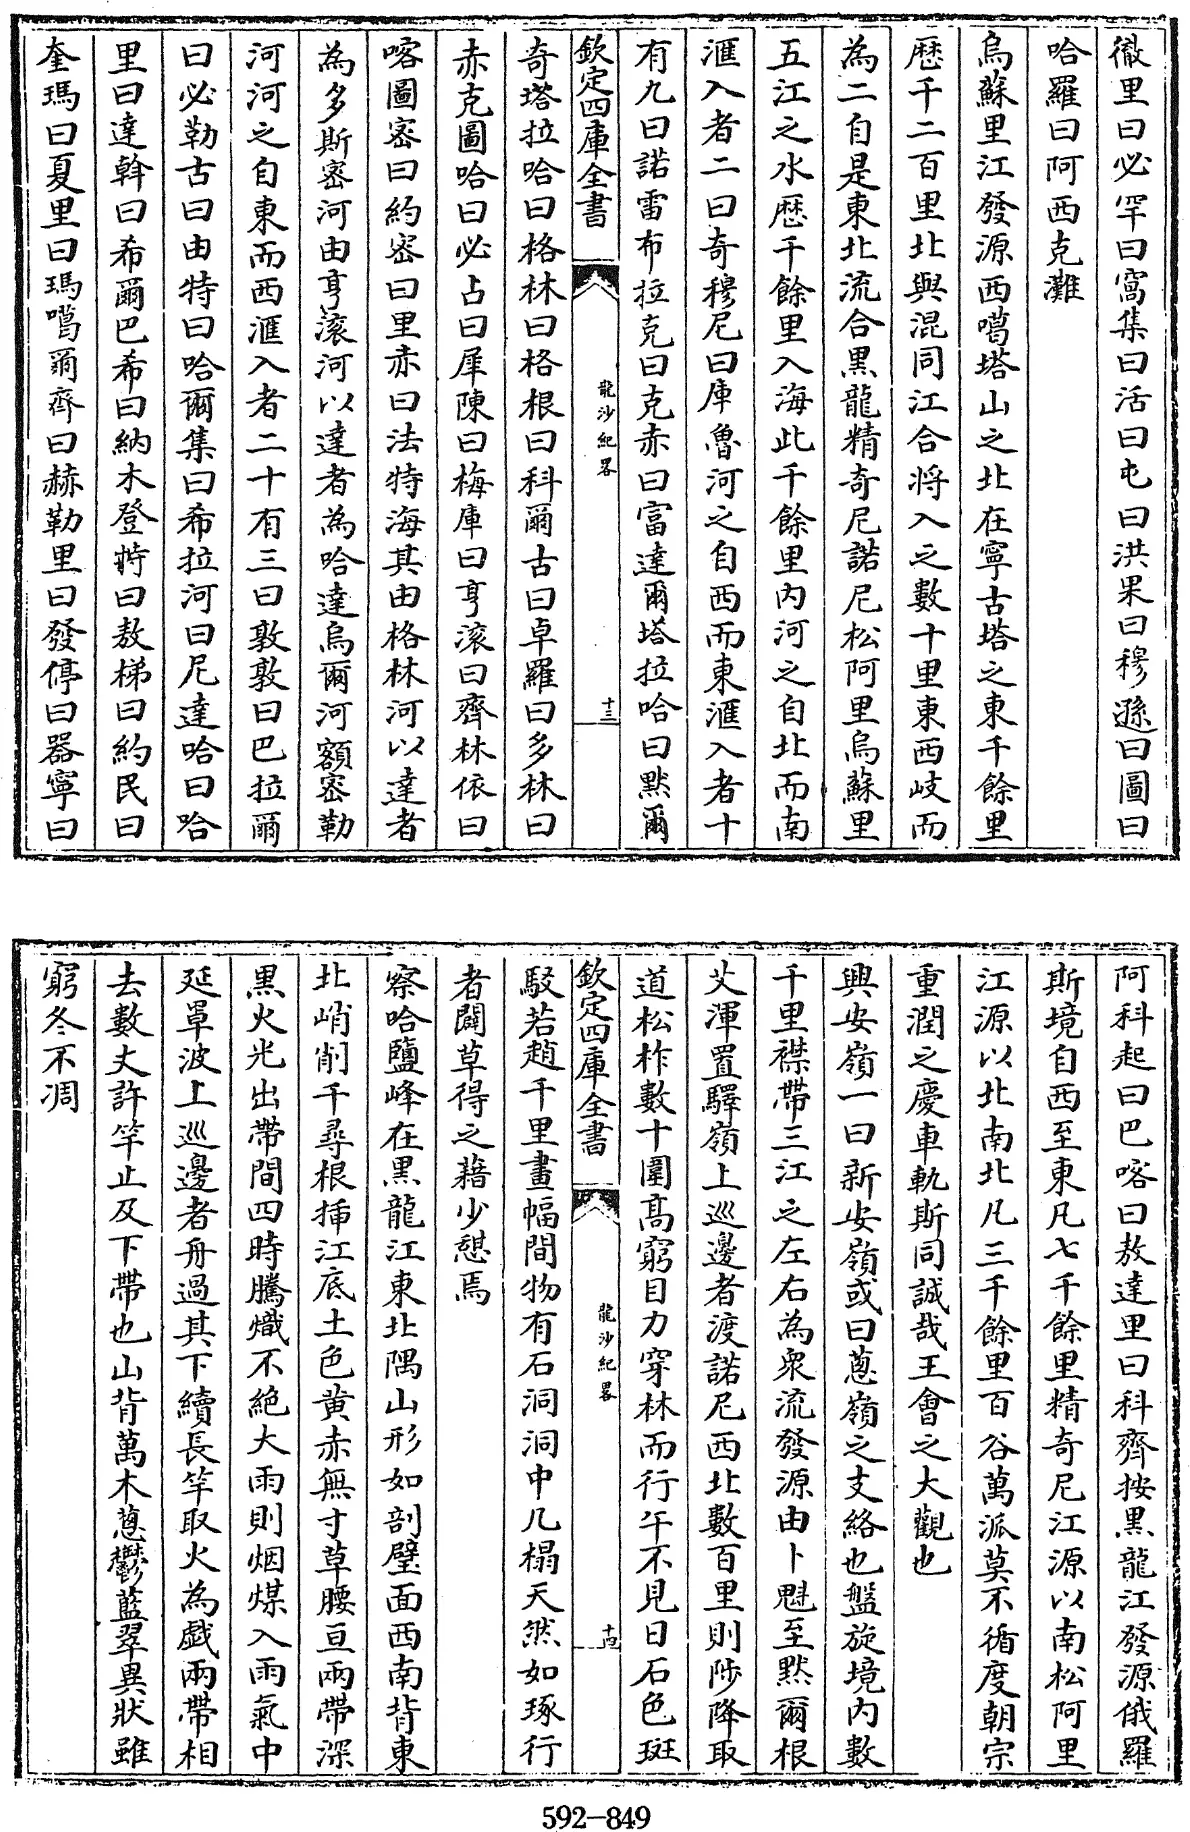 徹里曰必罕曰窩集曰活曰屯曰洪果曰穆遜曰圖曰
哈羅曰阿西克灘
烏蘇里江發源西噶塔山之北在寧古塔之東千餘里
歴千二百里北與混同江合將入之數十里東西岐而
為二自是東北流合黑龍精奇尼諾尼松阿里烏蘇里
五江之水歴千餘里入海此千餘里内河之自北而南
滙入者二曰奇穆尼曰庫魯河之自西而東滙入者十
有九曰諾雷布拉克曰克赤曰富達爾塔拉哈曰黙爾
欽定四庫全書
龍沙紀畧
十三
奇塔拉哈曰格林曰格根曰科爾古曰卓羅曰多林曰
赤克圖哈曰必占曰犀陳曰梅庫曰亨滚曰齊林依曰
喀圖密曰約密曰里赤曰法特海其由格林河以達者
為多斯密河由亨滚河以達者為哈達烏爾河額密勒
河河之自東而西滙入者二十有三曰敦敦曰巴拉爾
曰必勒古曰由特曰哈爾集曰希拉河曰尼達哈曰哈
里曰達斡曰希爾巴希曰納木登特曰敖梯曰約民曰
奎瑪曰夏里曰瑪噶爾齊曰赫勒里曰發停曰器寧曰
阿科起曰巴喀曰敖達里曰科齊按黑龍江發源俄羅
斯境自西至東凡七千餘里精奇尼江源以南松阿里
江源以北南北凡三千餘里百谷萬派莫不循度朝宗
重潤之慶車軌斯同誠哉王會之大觀也
興安嶺一曰新安嶺或曰葱嶺之支絡也盤旋境内數
千里襟帶三江之左右為衆流發源由卜魁至黙爾根
艾渾置驛嶺上巡邊者渡諾尼西北數百里則陟降取
道松柞數十圍髙窮目力穿林而行午不見日石色斑
欽定四庫全書
龍沙紀畧
十四
駁若趙千里畫幅間物有石洞洞中几榻天然如琢行
者闢草得之藉少憇焉
察哈鹽峰在黑龍江東北隅山形如剖壁面西南背東
北峭削千尋根插江底土色黄赤無寸草腰亘兩帶深
黑火光出帶間四時騰熾不絶大雨則烟煤入雨氣中
延罩波上巡邊者舟過其下續長竿取火為戯兩帶相
去數丈許竿止及下帶也山背萬木葱鬱藍翠異狀雖
窮冬不凋
592-849